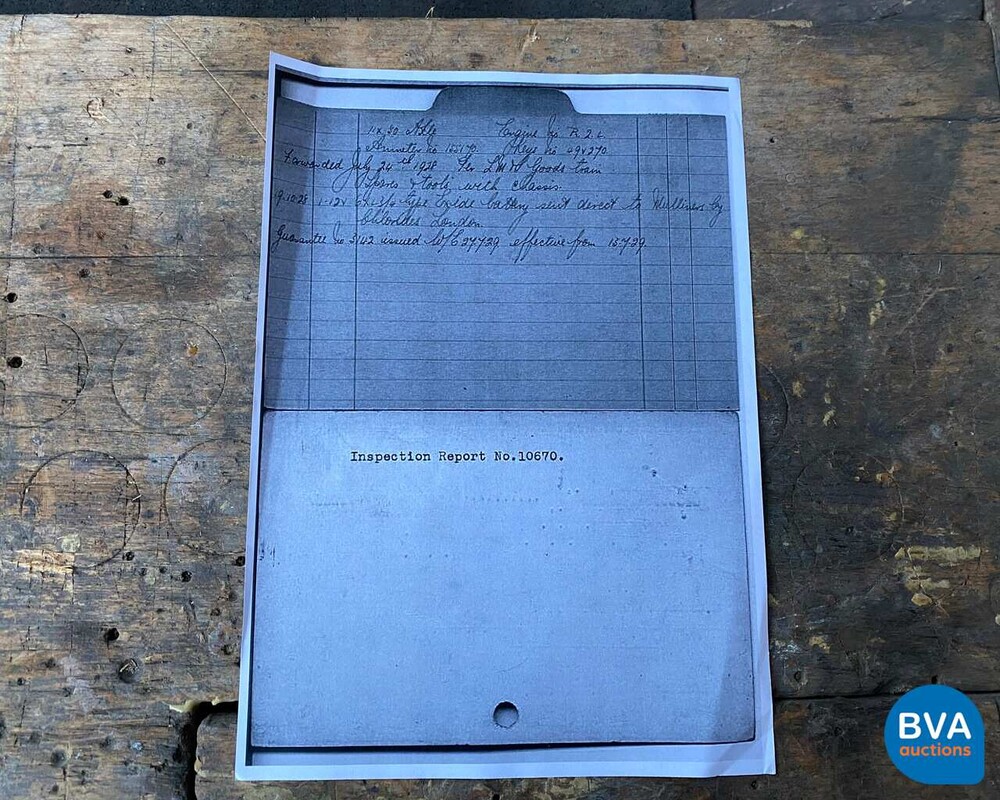 Engine No. R.2 L.
Ammeter no 155170. Keys no 49 & 270.
Forwarded July 24th 1928 Per L M & S Goods train
Spares & tools with chassis.
9.10.28 1-12v type Exide battery sent direct to Mulliners by
Chlorides London.
Guarantee No 3142 issued W/E 27729, effective from 15729.
Inspection Report No.10670.
BVA
auctions